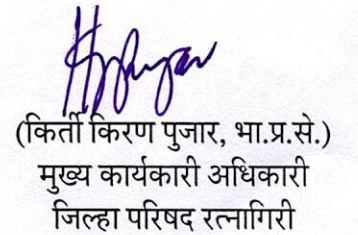 (किर्ती किरण पुजार, भा.प्र.से.)
मुख्य कार्यकारी अधिकारी
जिल्हा परिषद रत्नागिरी